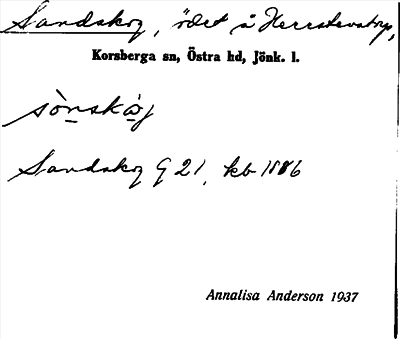 Sandskog, ödet å Herrstevatorp,
Korsberga sn, Östra hd, Jönk. l.
sònskò̠j
Sandskog G 21, kb 1886
Annalisa Anderson 1937